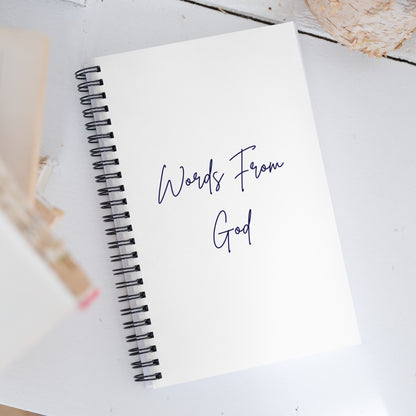 Words From
God